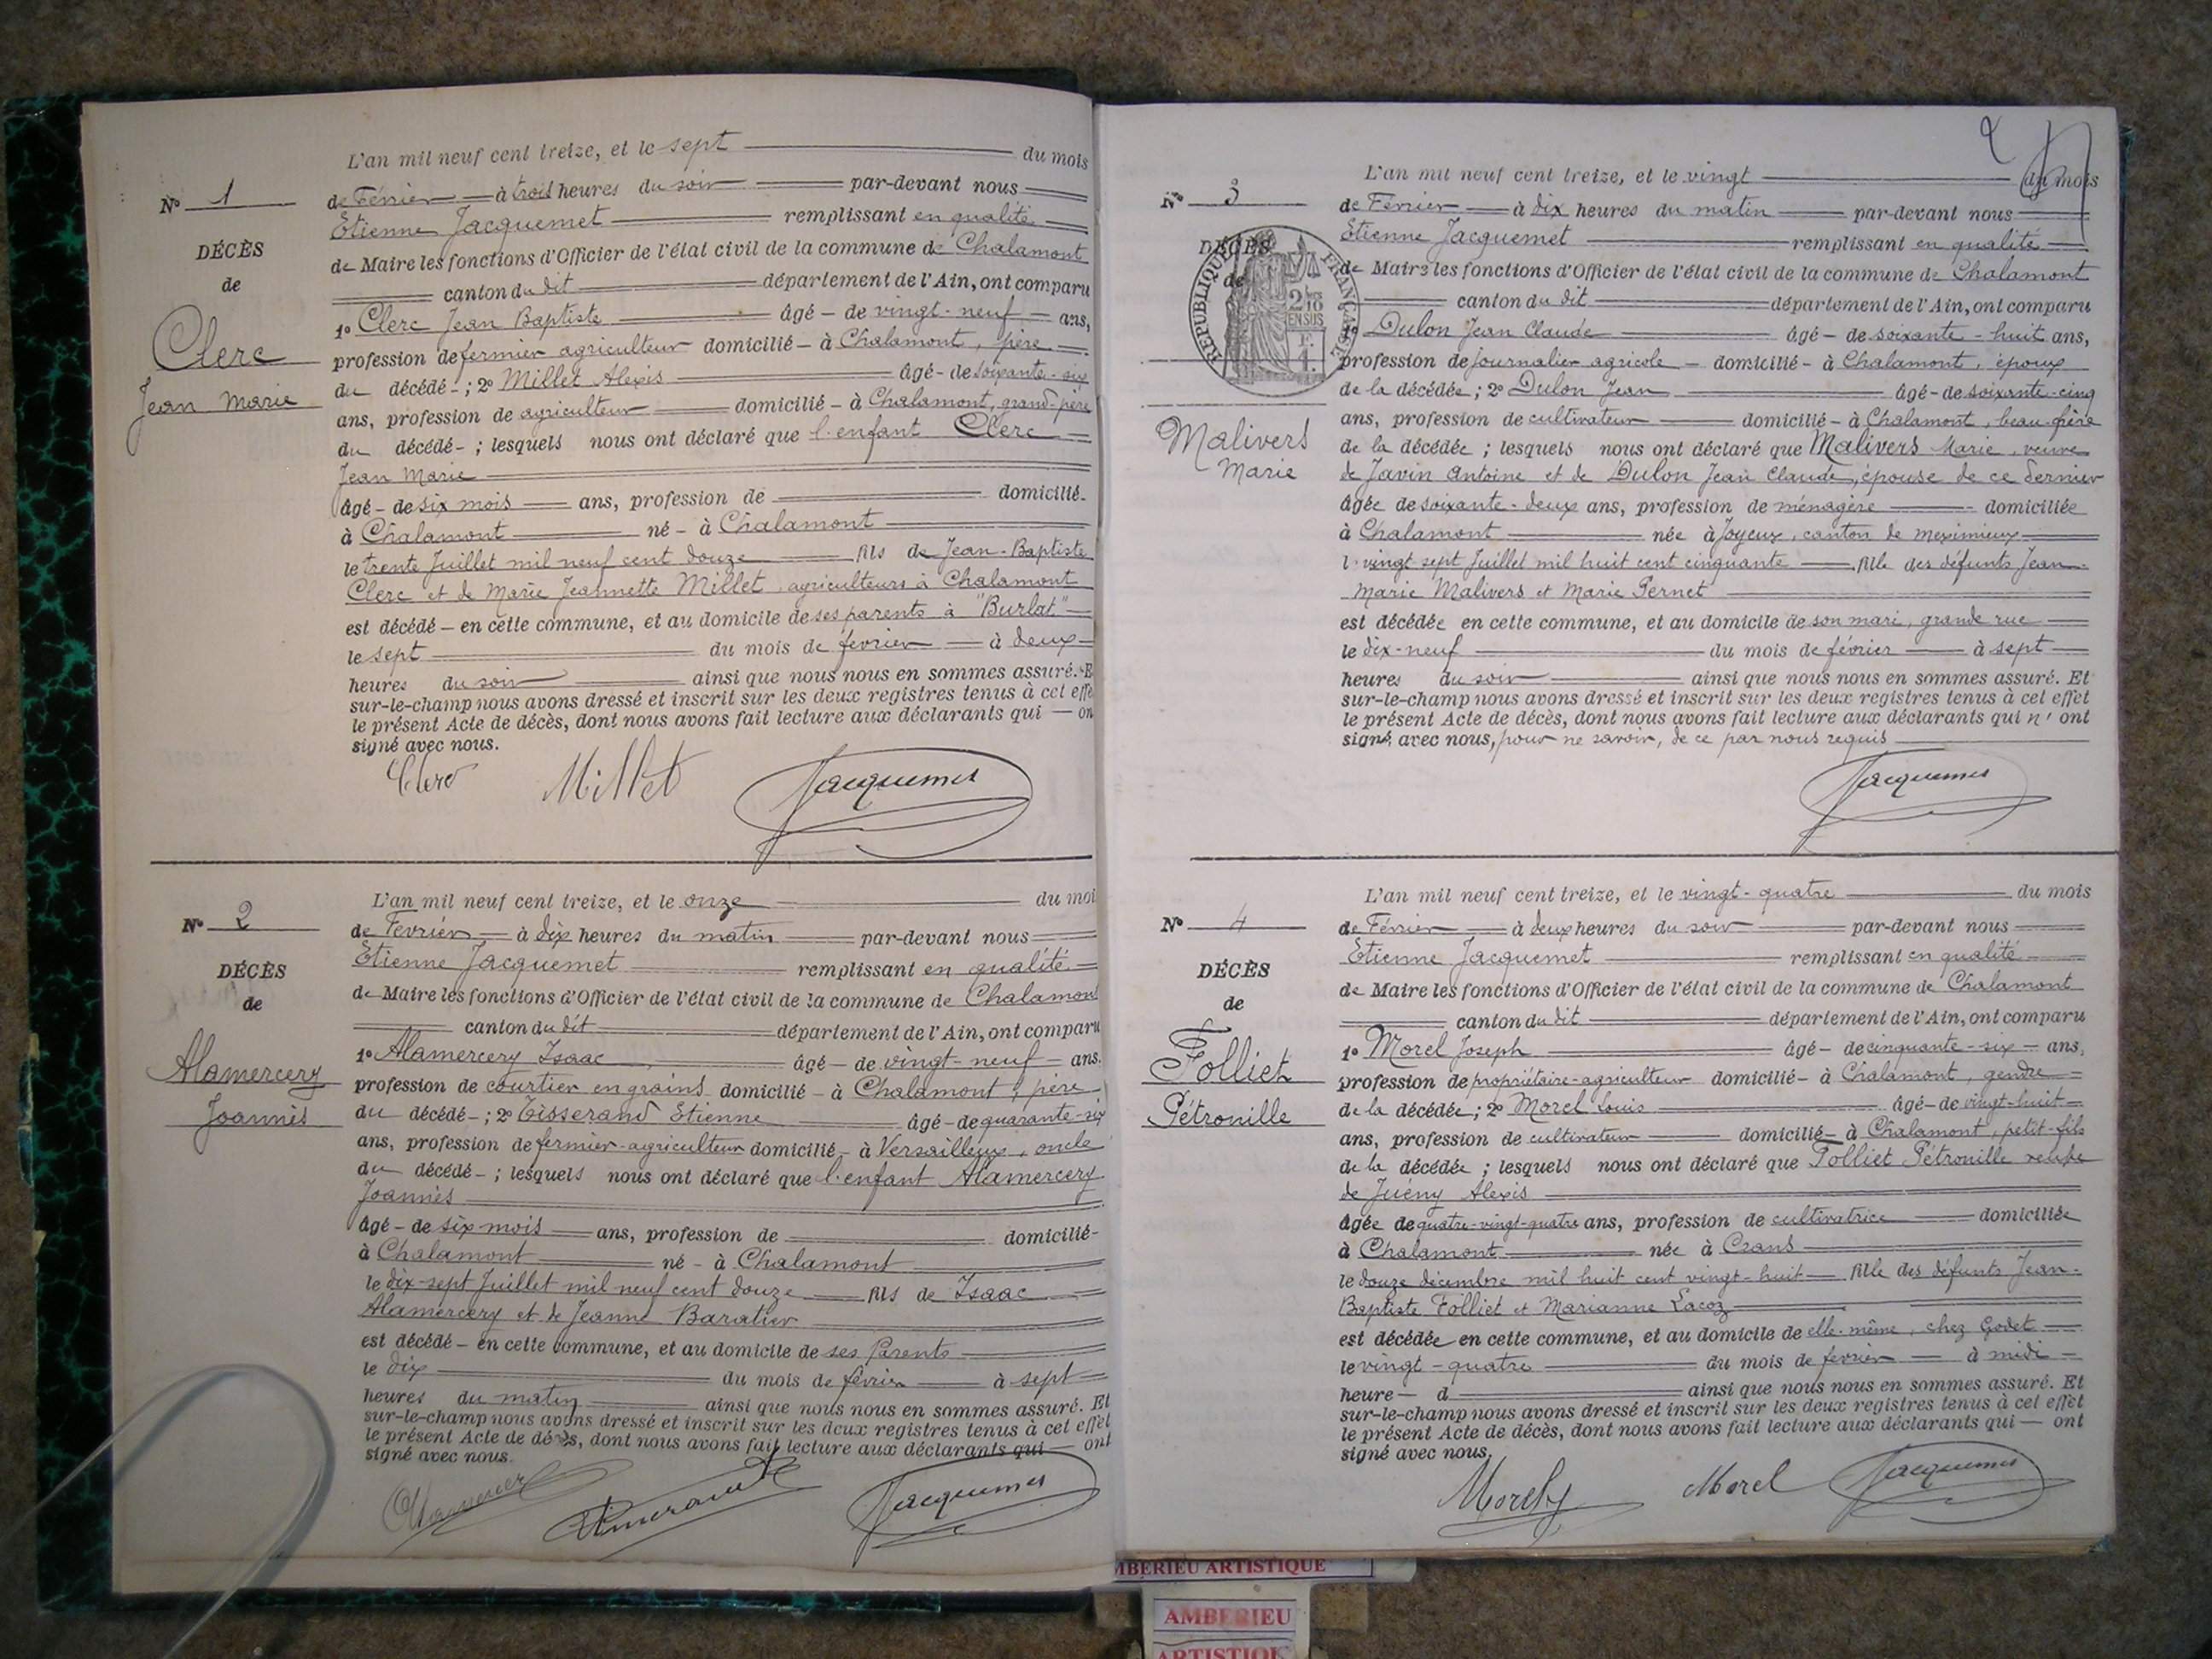 L'an mil neuf cent treize, et le sept du mois
N° 1
de Février à trois heures du soir par-devant nous
Etienne Jacquemet remplissant en qualité
DÉCÈS
de Maire les fonctions d'Officier de l'état civil de la commune de Chalamont
de
canton du dit département de l'Ain, ont comparu
1° Clerc Jean Baptiste âgé - de vingt-neuf ans,
Clerc
profession de fermier agriculteur domicilié - à Chalamont, père
Jean Marie
du décédé - ; 2° Millet Alexis âgé - de soixante-six
ans, profession de agriculteur domicilié - à Chalamont, grand-père
du décédé - ; lesquels nous ont déclaré que l'enfant Clerc
Jean Marie
âgé - de six mois ans, profession de domicilié -
à Chalamont né - à Chalamont
le trente Juillet mil neuf cent douze fils de Jean-Baptiste
Clerc et de Marie Jeannette Millet, agriculteurs à Chalamont
est décédé - en cette commune, et au domicile de ses parents à "Burlat"
le sept du mois de février à deux
heures du soir ainsi que nous nous en sommes assuré. E
sur-le-champ nous avons dressé et inscrit sur les deux registres tenus à cet effe
le présent Acte de décès, dont nous avons fait lecture aux déclarants qui — on
signé avec nous.
Clerc Millet Jacquemet
L'an mil neuf cent treize, et le onze du moi
N° 2
de Février à dix heures du matin par-devant nous
Etienne Jacquemet remplissant en qualité
DÉCÈS
de Maire les fonctions d'Officier de l'état civil de la commune de Chalamont
de
canton du dit département de l'Ain, ont comparu
1° Alamercery Isaac âgé - de vingt-neuf ans.
Alamercery
profession de courtier en grains domicilié - à Chalamont, père
Joannès
du décédé - ; 2° Tisserand Etienne âgé - de quarante-six
ans, profession de fermier-agriculteur domicilié - à Versailleux, oncle
du décédé - ; lesquels nous ont déclaré que l'enfant Alamercery
Joannès
âgé - de six mois ans, profession de domicilié -
à Chalamont né - à Chalamont
le dix-sept Juillet mil neuf cent douze fils de Isaac
Alamercery et de Jeanne Baratier
est décédé - en cette commune, et au domicile de ses Parents
le dix du mois de février à sept
heures du matin ainsi que nous nous en sommes assuré. Et
sur-le-champ nous avons dressé et inscrit sur les deux registres tenus à cet effet
le présent Acte de décès, dont nous avons fait lecture aux déclarants qui — ont
signé avec nous.
Jacquemet
2
L'an mil neuf cent treize, et le vingt du mois
N° 3
de Février à dix heures du matin par-devant nous
Etienne Jacquemet remplissant en qualité
DÉCÈS
de Maire les fonctions d'Officier de l'état civil de la commune de Chalamont
de
RÉPUBLIQUE FRANÇAISE
2/10 EN SUS
canton du dit département de l'Ain, ont comparu
1° Dulon Jean Claude âgé - de soixante-huit ans,
profession de journalier agricole domicilié - à Chalamont, époux
de la décédée ; 2° Dulon Jean âgé - de soixante-cinq
ans, profession de cultivateur domicilié - à Chalamont, beau-frère
Malivers
Marie
de la décédée ; lesquels nous ont déclaré que Malivers Marie, veuve
de Javin Antoine et de Dulon Jean Claude, épouse de ce dernier
âgée de soixante-deux ans, profession de ménagère domiciliée
à Chalamont née à Joyeux, canton de Meximieux
l vingt sept Juillet mil huit cent cinquante fille des défunts Jean-
Marie Malivers et Marie Pernet
est décédée en cette commune, et au domicile de son mari, grande rue
le dix-neuf du mois de février à sept
heures du soir ainsi que nous nous en sommes assuré. Et
sur-le-champ nous avons dressé et inscrit sur les deux registres tenus à cet effet
le présent Acte de décès, dont nous avons fait lecture aux déclarants qui n'ont
signé avec nous, pour ne savoir, de ce par nous requis
Jacquemet
L'an mil neuf cent treize, et le vingt-quatre du mois
N° 4
de Février à deux heures du soir par-devant nous
Etienne Jacquemet remplissant en qualité
DÉCÈS
de Maire les fonctions d'Officier de l'état civil de la commune de Chalamont
de
canton du dit département de l'Ain, ont comparu
1° Morel Joseph âgé - de cinquante-six ans,
Folliet
profession de propriétaire-agriculteur domicilié - à Chalamont, gendre
Pétronille
de la décédée ; 2° Morel Louis âgé - de vingt-huit
ans, profession de cultivateur domicilié - à Chalamont, petit-fils
de la décédée ; lesquels nous ont déclaré que Folliet Pétronille veuve
de Juény Alexis
âgée de quatre-vingt-quatre ans, profession de cultivatrice domiciliée
à Chalamont née à Crans
le douze décembre mil huit cent vingt-huit fille des défunts Jean-
Baptiste Folliet et Marianne Lacoz
est décédée en cette commune, et au domicile de elle-même, chez Godet
le vingt-quatre du mois de février à midi
heure — d ainsi que nous nous en sommes assuré. Et
sur-le-champ nous avons dressé et inscrit sur les deux registres tenus à cet effet
le présent Acte de décès, dont nous avons fait lecture aux déclarants qui — ont
signé avec nous.
Morel Morel Jacquemet
MBERIEU ARTISTIQUE
AMBERIEU
ARTISTIQU